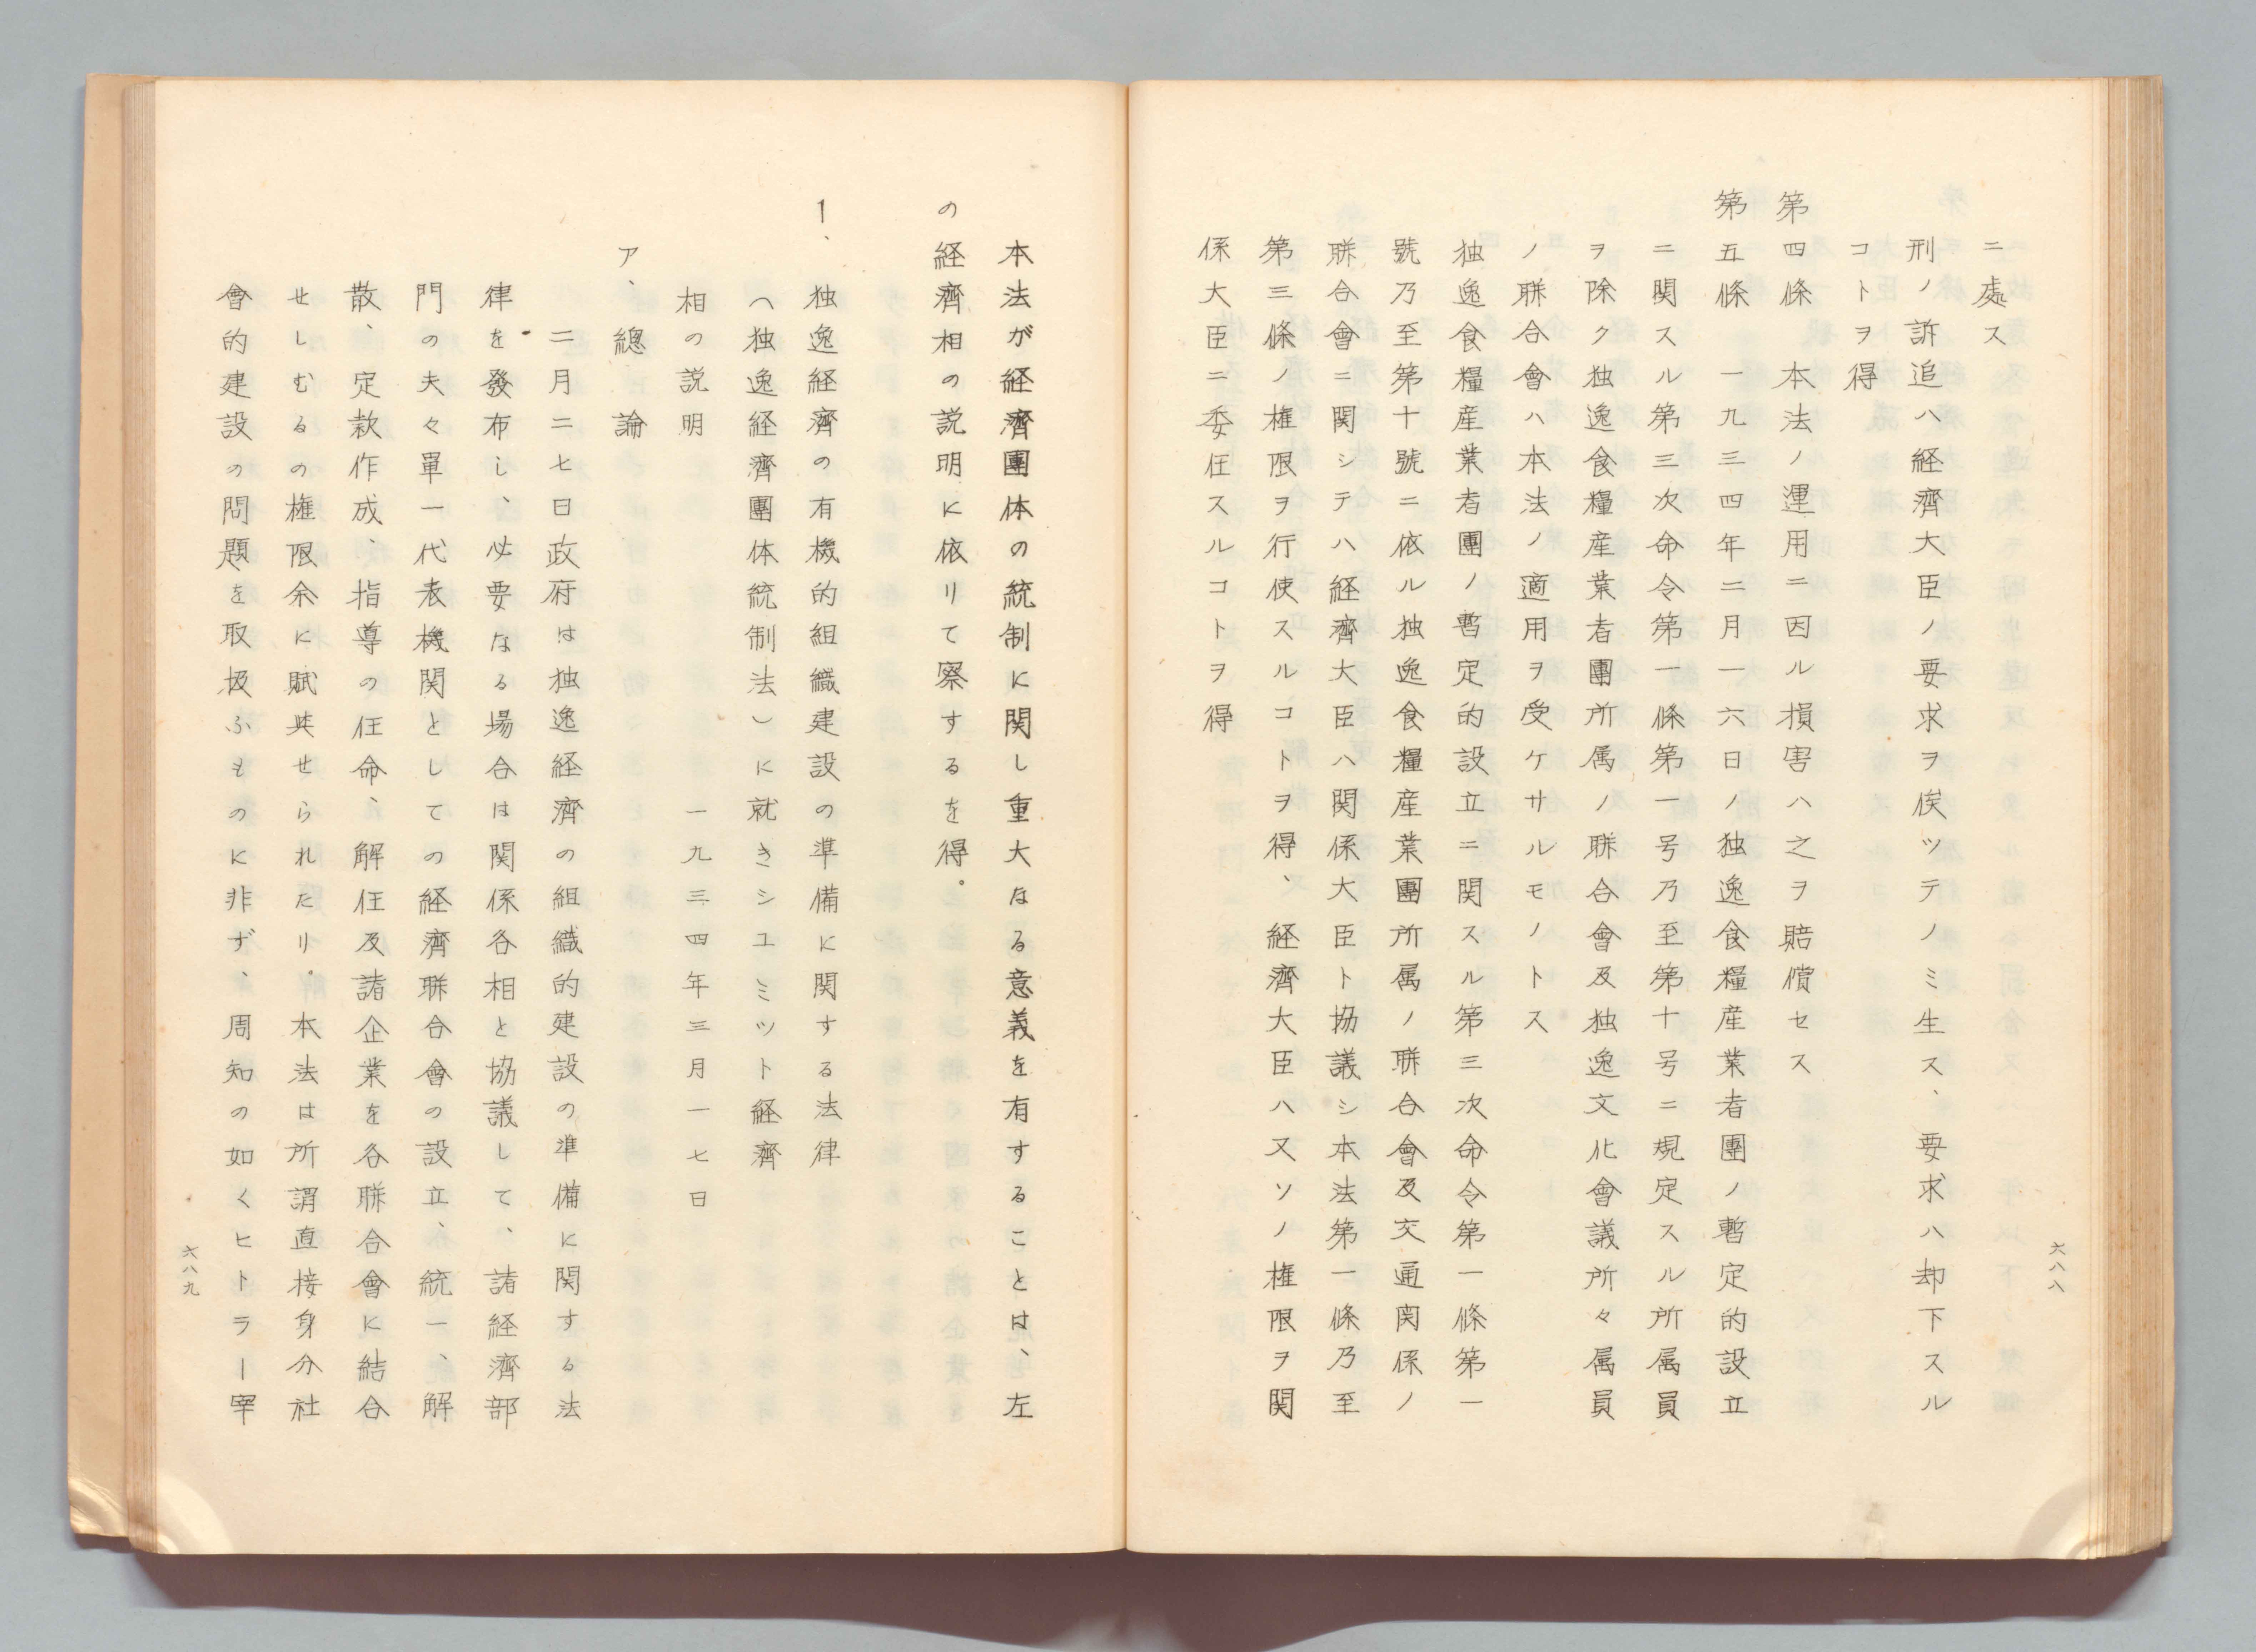 ニ處ス
刑ノ訴追ハ経濟大臣ノ要求ヲ俟ツテノミ生ス、要求ハ却下スル
コトヲ得
第四條　本法ノ運用ニ因ル損害ハ之ヲ賠償セス
第五條　一九三四年二月一六日ノ独逸食糧産業者團ノ暫定的設立
ニ関スル第三次命令第一條第一号乃至第十号ニ規定スル所属員
ヲ除ク独逸食糧産業者團所属ノ聯合會及独逸文化會議所々属員
ノ聯合會ハ本法ノ適用ヲ受ケサルモノトス
独逸食糧産業者團ノ暫定的設立ニ関スル第三次命令第一條第一
號乃至第十號ニ依ル独逸食糧産業團所属ノ聯合會及交通関係ノ
聯合會ニ関シテハ経濟大臣ハ関係大臣ト協議シ本法第一條乃至
第三條ノ権限ヲ行使スルコトヲ得、経濟大臣ハ又ソノ権限ヲ関
係大臣ニ委任スルコトヲ得
六八八
本法が経濟團体の統制に関し重大なる意義を有することは、左
の経濟相の説明に依りて察するを得。
1、独逸経濟の有機的組織建設の準備に関する法律
（独逸経濟團体統制法）に就きシユミット経濟
相の説明　一九三四年三月一七日
ア、總論
二月二七日政府は独逸経濟の組織的建設の準備に関する法
律を發布し、必要なる場合は関係各相と協議して、諸経濟部
門の夫々單一代表機関としての経濟聯合會の設立、統一、解
散、定款作成、指導の任命、解任及諸企業を各聯合會に結合
せしむるの権限余に賦与せられたり。本法は所謂直接身分社
會的建設の問題を取扱ふものに非ず、周知の如くヒトラー宰
六八九